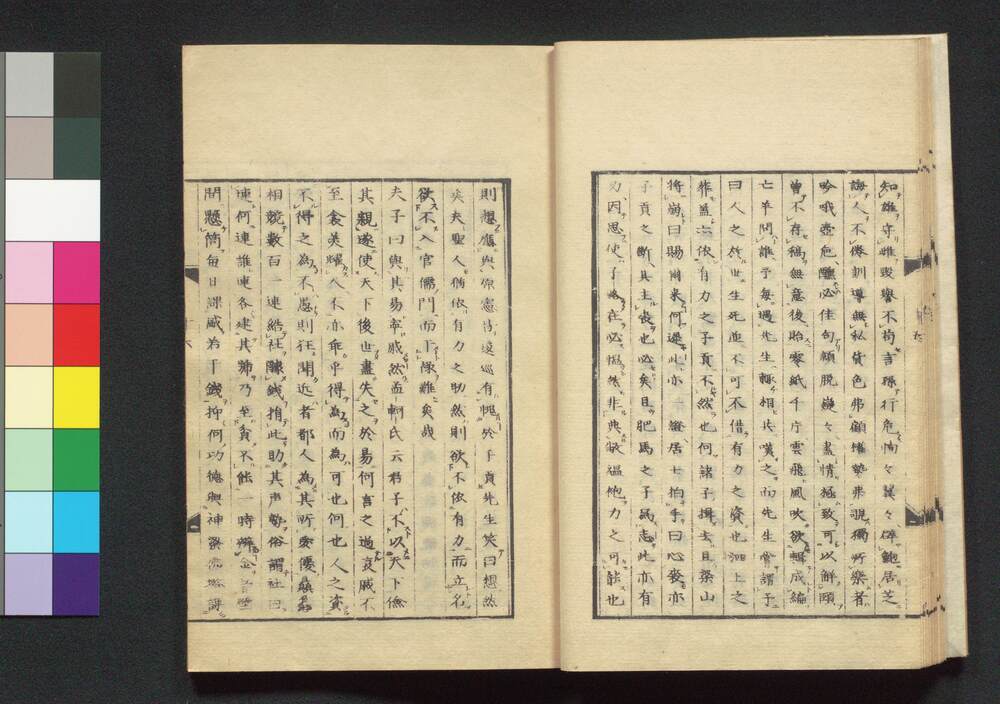 知雄守雌毀譽不苟言孫行危惰々翼々碎鮑居芝
誨人不倦訓導無私貨色弗顧權勢弗覬獨所樂者
吟哦壺卮釃必佳句頴脱變々盡情極致可以解頤
曾不存稿無意後貽零紙千片雲飛風吹欲輯成編
亡羊問誰予每遇先生輙相共嘆之而先生嘗謂予
曰人之於世生死並不可不借有力之資也泗上之
葬蓋亦依有力之子貢不然也何諸子揖去且泰山
將崩曰賜爾來何遲此亦證居士拍手曰心喪亦
子貢之斷其主喪也必矣且肥馬之子長志此亦有
力因思使子路在必慍然非典敝縕袍力之可能也
則想應與原憲逡巡有愧於子貢先生笑曰想然
矣夫聖人猶依有力之助然則欲不依有力而立名
欲不入官儒門而下帷難矣哉
夫子曰與其易寧戚然孟軻氏云君子不以天下儉
其親遂使天下後世盡失之於易何言之過哀戚不
至食美耀人不亦乖乎得為而為可也何也人之資
不得之為不愚則狂聞近者都人為其所委優
相競數百一連結社醵錢捐此助其声勢俗謂社曰
連何連誰連各建其號乃至貧不能一時辦金
問懸筒每日課感為干錢抑何功德與神